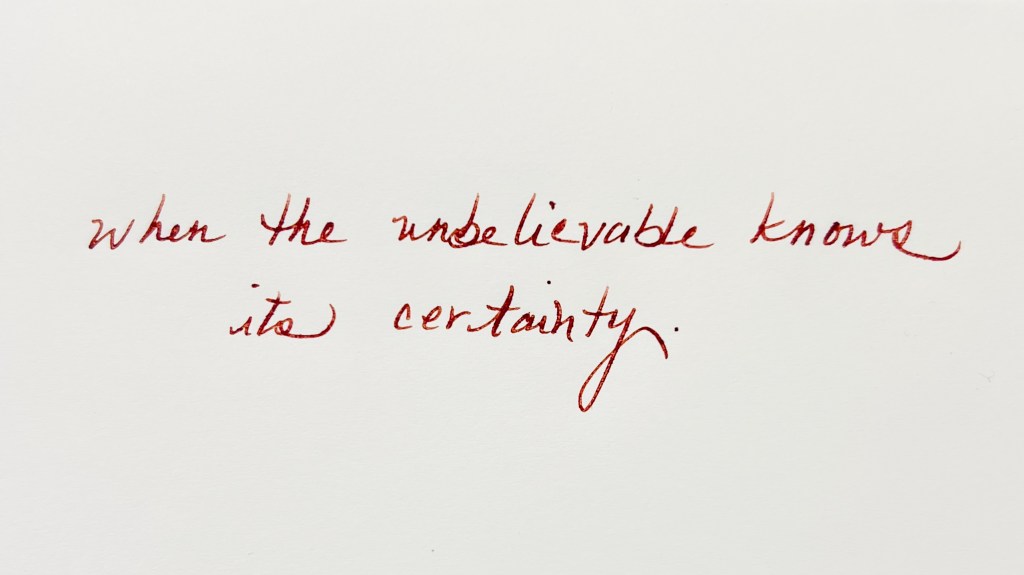 when the unbelievable knows
its certainty.